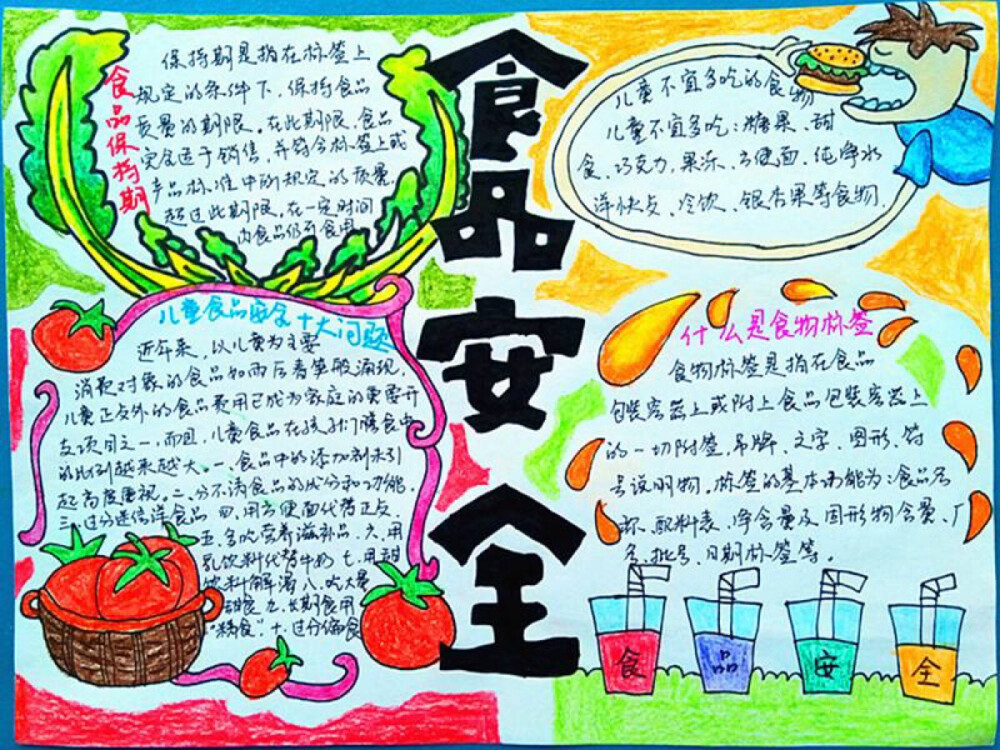 食品安全
食品保持期
保持期是指在标签上
规定的条件下,保持食品
质量的期限。在此期限,食品
完全适于销售,并符合标签上或
产品标准中所规定的质量,
超过此期限,在一定时间
内食品仍可食用
儿童不宜多吃的食物
儿童不宜多吃:糖果、甜
食、巧克力、果冻、方便面、纯净水
洋快点、冷饮、银杏果等食物.
儿童食品安全十大问题
近年来,以儿童为主要
消费对象的食品如雨后春笋般涌现,
儿童正支外的食品费用已成为家庭的重要开
支项目之一,而且,儿童食品在孩子们膳食中
的比例越来越大 一、食品中的添加剂未引
起高度重视。二、分不清食品的成分和功能,
三、过分迷信洋食品 四、用方便面代替正支,
五、多吃营养滋补品、六、用
乳饮料代替牛奶 七、用甜
饮料解渴 八、吃大量
甜食 九、长期食用
“精食”.十、过分偏食
什么是食物标签
食物标签是指在食品
包装容器上或附上食品包装容器上
的一切附签、吊牌、文字、图形、符
号说明物。标签的基本功能为:食品名
称、配料表、净含量及固形物含量、厂
名、批号、日期标签等。
食 品 安 全